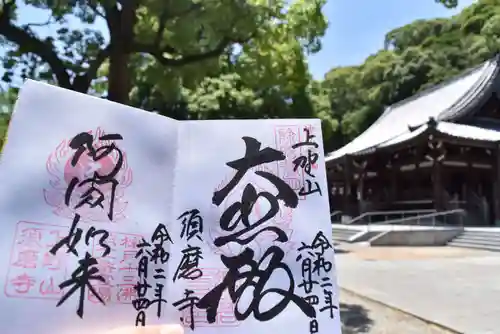 大悲殿
上野山
令和二年
六月廿四日
須磨寺
阿閦如来
令和二年
六月廿四日
須磨寺